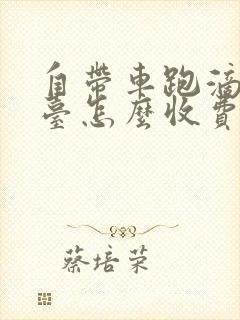 自帶車跑滴
臺怎麼收費
蔡培荣